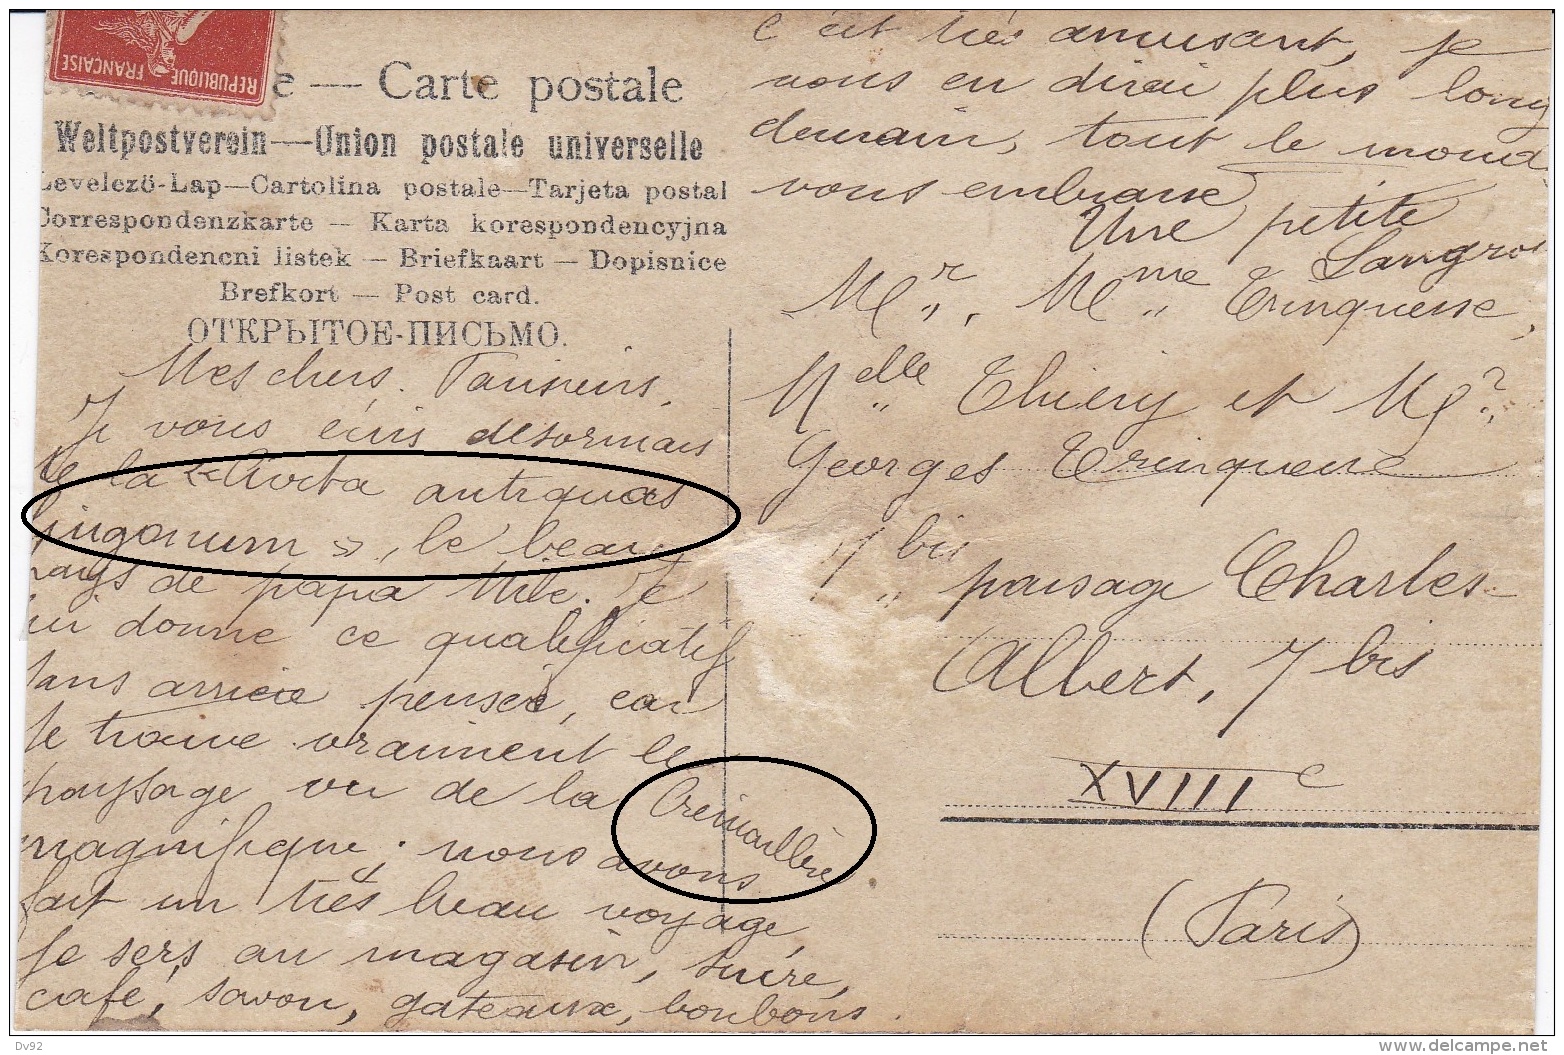 REPUBLIQUE FRANÇAISE
e — Carte postale
Weltpostverein — Union postale universelle
Levelező-Lap — Cartolina postale — Tarjeta postal
Correspondenzkarte — Karta korespondencyjna
Korespondencni listek — Briefkaart — Dopisnice
Brefkort — Post card.
ОТКРЫТОЕ-ПИСЬМО.
Mes chers Parisiens,
Je vous écris désormais
de la « antiquas
lingonum », le beau
pays de papa Mile. Je
lui donne ce qualificatif
sans arrière pensée, car
je trouve vraiment le
paysage vu de la Crémaillère
magnifique ; nous avons
fait un très beau voyage,
je sers au magasin, sucre,
café, savon, gateaux, bonbons.
c'est très amusant, je
vous en dirai plus long
demain, tout le monde
vous embrasse
Une petite
Langroise
Mr, Mme Trinquesse,
Melle Thiéry et Mr
Georges Trinquesse
7 bis passage Charles-
Albert, 7 bis
XVIIIe
(Paris)
Dv92
delcampe.net